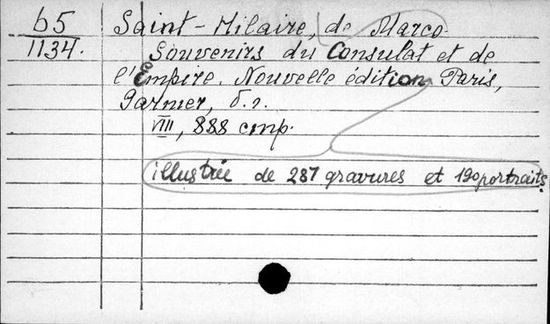 65
1134.
Saint-Hilaire, de Marco.
Souvenirs du Consulat et de
l'Empire. Nouvelle édition Paris,
Garnier, б.г.
VIII, 888 стр.
illustrée de 287 gravures et 190 portraits